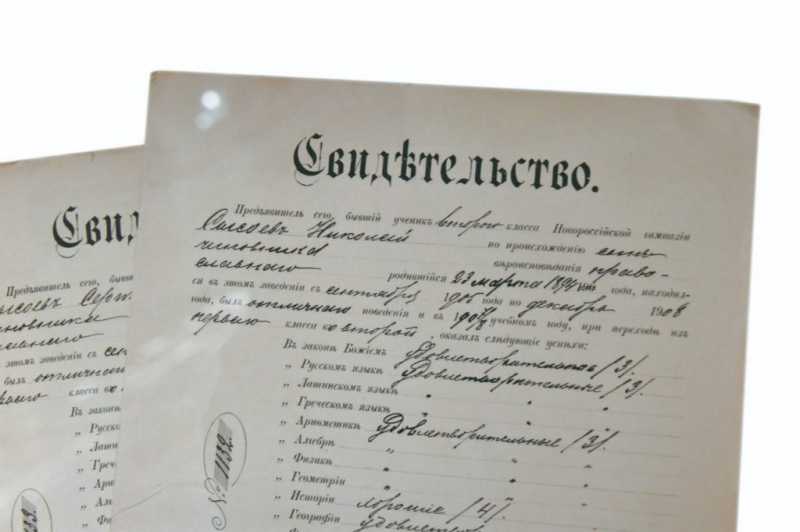 Свидѣтельство.
Предъявитель сего, бывшій ученикъ второго класса Новороссійской гимназіи
Сысоевъ Николай по происхожденію сынъ
чиновника вѣроисповѣданія право-
славнаго родившійся 23 марта года, находил-
ся въ этомъ заведеніи съ сентября 1906 года по декабрь 1908
года, былъ отличнаго поведенія и въ 1907/8 учебномъ году, при переходѣ изъ
перваго класса во второй, оказалъ слѣдующіе успѣхи:
Въ законѣ Божіемъ Удовлетворительные /3/.
„ Русскомъ языкѣ Удовлетворительные /3/.
„ Латинскомъ языкѣ „ „
„ Греческомъ языкѣ „ „
„ Ариѳметикѣ удовлетворительные /3/.
„ Алгебрѣ „ „
„ Физикѣ „ „
„ Геометріи „ „
„ Исторіи хорошіе /4/.
„ Географіи удовлетв
№ 1132
Свид
Предъявитель сего, бывш
Сысоевъ Серг
чиновника
славнаго
этомъ заведеніи съ сен
былъ отличнаго
класса
Въ закон
„ Русск
„ Лати
„ Греч
„ Ари
„ Ал
„ Фи